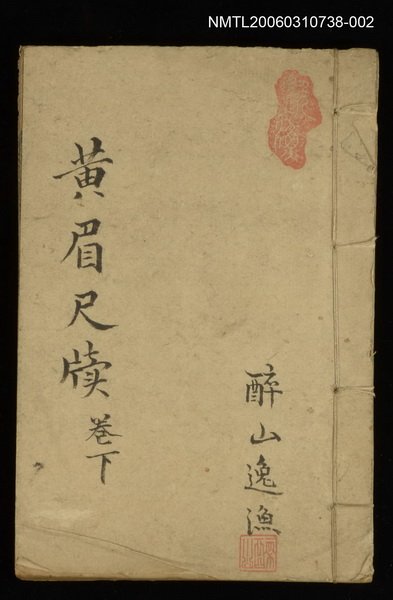 NMTL20060310738-002
黄眉尺牘 卷下
醉山逸漁